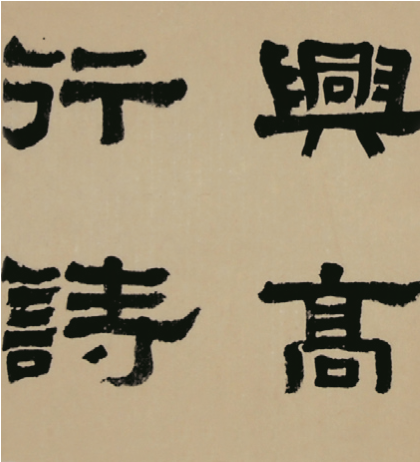 興高
行詩